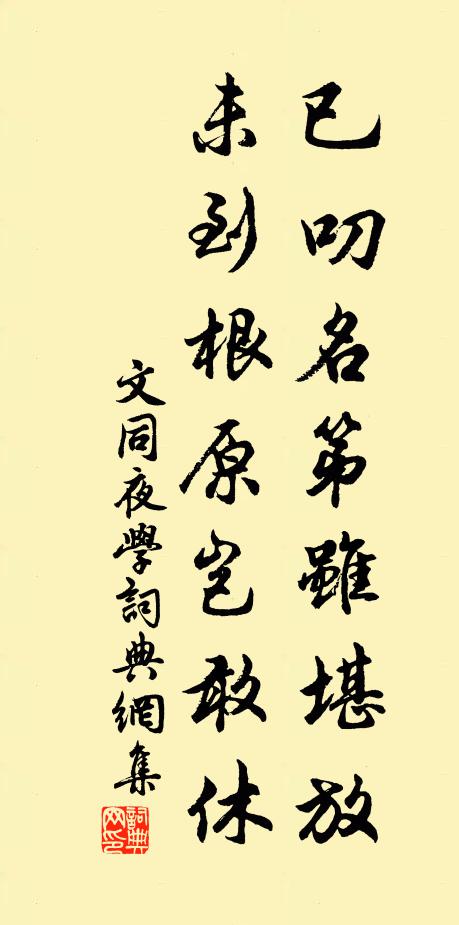 已叨名第雖堪放
未到根原豈敢休
文同夜學詞典網集
詞典網印